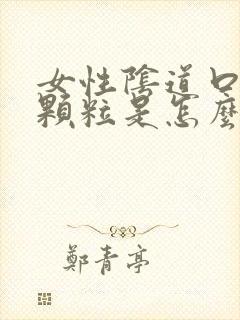 女性陰道口
顆粒是怎麼
鄭青亭